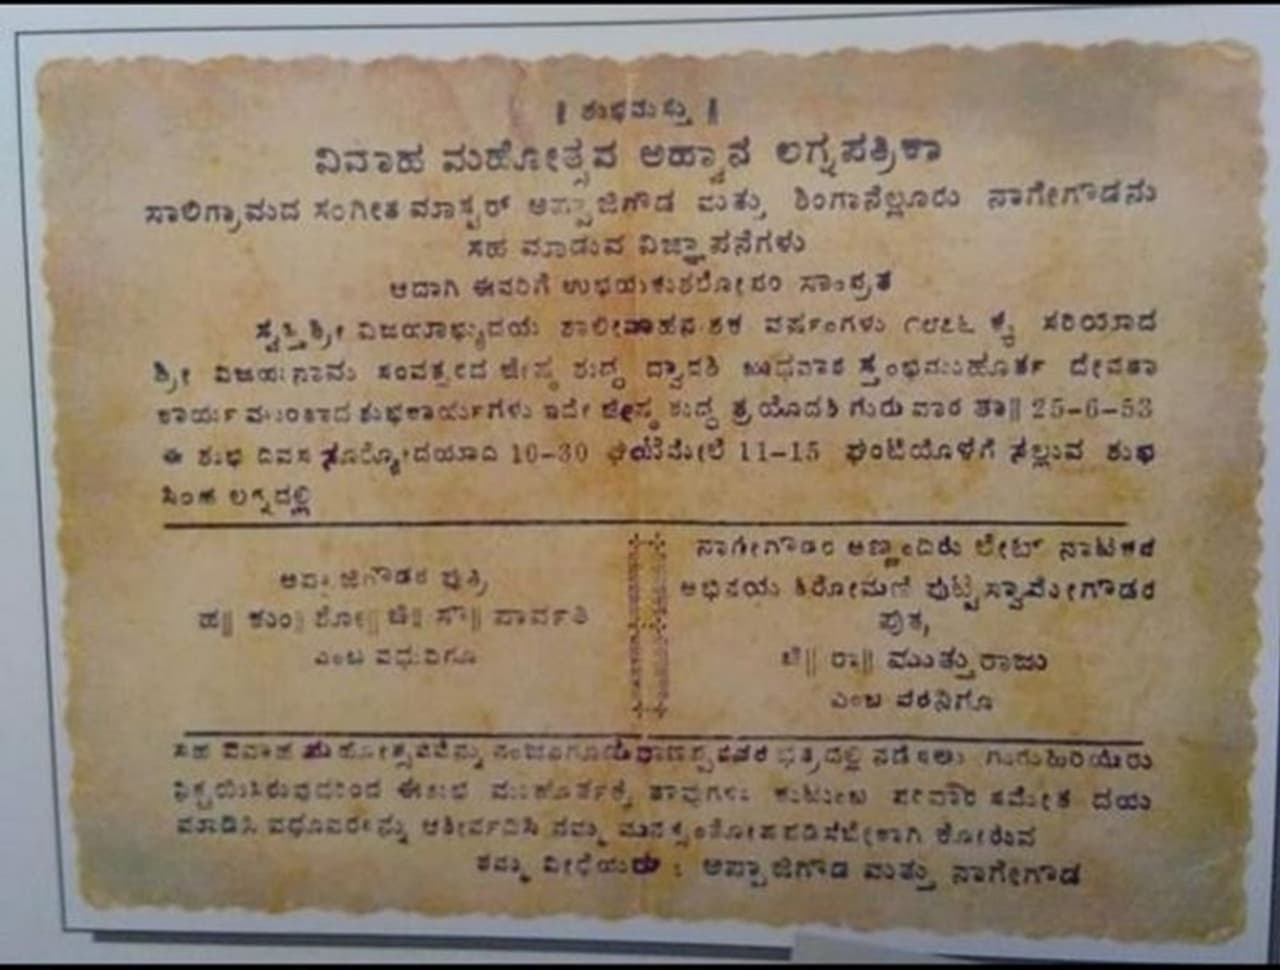 ॥ ಶುಭಮಸ್ತು ॥
ವಿವಾಹ ಮಹೋತ್ಸವ ಅಹ್ವಾನ ಲಗ್ನಪತ್ರಿಕಾ
ಸಾಲಿಗ್ರಾಮದ ಸಂಗೀತ ಮಾಸ್ಟರ್ ಅಪ್ಪಾಜಿಗೌಡ ಮತ್ತು ಶಿಂಗಾನೆಲ್ಲೂರು ನಾಗೇಗೌಡನು
ಸಹ ಮಾಡುವ ವಿಜ್ಞಾಪನೆಗಳು
ಆದಾಗಿ ಈವರಿಗೆ ಉಭಯಕುಶಲೋಪರಂ ಸಾಂಪ್ರತ
ಸ್ವಸ್ತಿಶ್ರೀ ವಿಜಯಾಭ್ಯುದಯ ಶಾಲೀವಾಹನ ಶಕ ವರ್ಷಂಗಳು ೧೮೭೬ ಕ್ಕೆ ಸರಿಯಾದ
ಶ್ರೀ ವಿಜಯನಾಮ ಸಂವತ್ಸರದ ಜೇಷ್ಠ ಶುದ್ಧ ದ್ವಾದಶಿ ಬುಧವಾರ ಸ್ತಂಭಮುಹೂರ್ತ ದೇವತಾ
ಕಾರ್ಯ ಮುಂತಾದ ಶುಭಕಾರ್ಯಗಳು ಇದೇ ಜೇಷ್ಠ ಶುದ್ಧ ತ್ರಯೋದಶಿ ಗುರುವಾರ ತಾ॥ 25-6-53
ಈ ಶುಭ ದಿವಸ ಸೂರ್ಯೋದಯಾದಿ 10-30 ಘಂಟೆಮೇಲೆ 11-15 ಘಂಟೆಯೊಳಗೆ ಸಲ್ಲುವ ಶುಭ
ಸಿಂಹ ಲಗ್ನದಲ್ಲಿ
ಅಪ್ಪಾಜಿಗೌಡರ ಪುತ್ರಿ
ಹ॥ ಕುಂ॥ ಶೋ॥ ಚಿ॥ ಸೌ॥ ಪಾರ್ವತಿ
ಎಂಬ ವಧುವಿಗೂ
ನಾಗೇಗೌಡರ ಅಣ್ಣಂದಿರು ಲೇಟ್ ನಾಟಕದ
ಅಭಿನಯ ಶಿರೋಮಣಿ ಪುಟ್ಟಸ್ವಾಮೀಗೌಡರ
ಪುತ್ರ
ಚಿ॥ ರಾ॥ ಮುತ್ತುರಾಜು
ಎಂಬ ವರನಿಗೂ
ಸಹ ವಿವಾಹ ಮಹೋತ್ಸವವನ್ನು ಛತ್ರದಲ್ಲಿ ನಡೆಸಲು ಗುರುಹಿರಿಯರು
ನಿಶ್ಚಯಿಸಿರುವುದರಿಂದ ಈ ಶುಭ ಮುಹೂರ್ತಕ್ಕೆ ತಾವುಗಳು ಕುಟುಂಬ ಪರಿವಾರ ಸಮೇತ ದಯ
ಮಾಡಿಸಿ ವಧೂವರರನ್ನು ಆಶೀರ್ವದಿಸಿ ನಮ್ಮ ಮನಸ್ಸಂತೋಷಪಡಿಸಬೇಕಾಗಿ ಕೋರುವ
ತಮ್ಮ ವಿಧೇಯರು : ಅಪ್ಪಾಜಿಗೌಡ ಮತ್ತು ನಾಗೇಗೌಡ